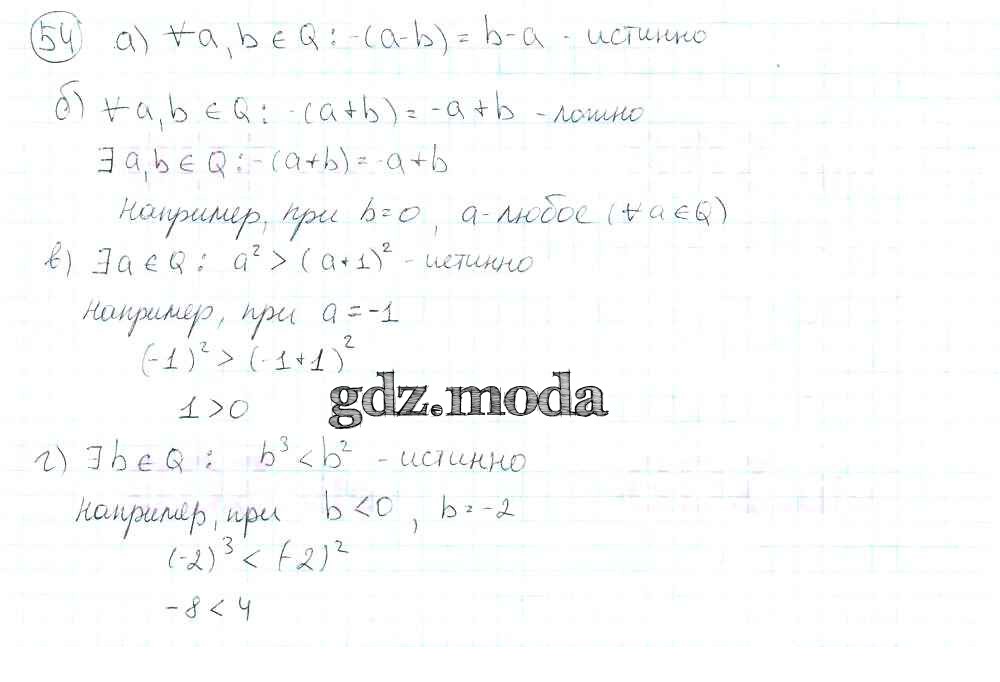 54 а) ∀a, b ∈ Q : -(a-b) = b-a - истинно
б) ∀a, b ∈ Q : -(a+b) = -a+b - ложно
∃a, b ∈ Q : -(a+b) = -a+b
Например, при b=0, a-любое (∀a∈Q)
в) ∃a ∈ Q : a² > (a+1)² - истинно
Например, при a = -1
(-1)² > (-1+1)²
gdz.moda
1 > 0
г) ∃b ∈ Q : b³ < b² - истинно
Например, при b < 0, b = -2
(-2)³ < (-2)²
-8 < 4